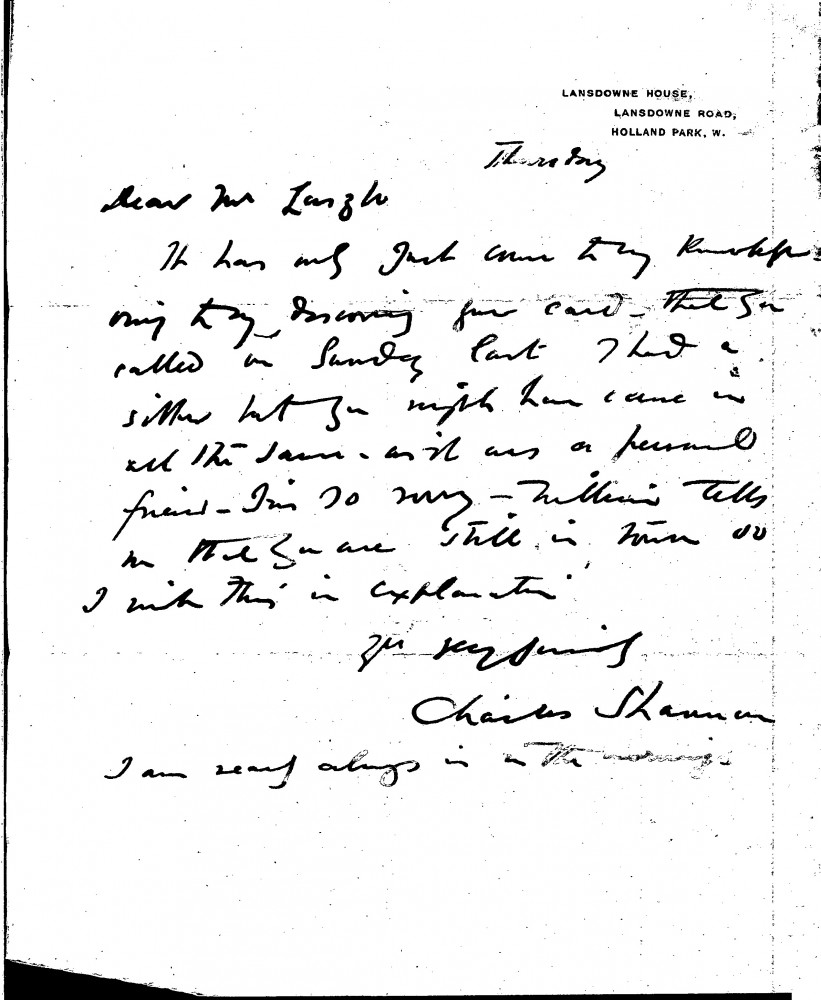 LANSDOWNE HOUSE,
LANSDOWNE ROAD,
HOLLAND PARK, W.
Thursday
Dear Mr Laszlo
It has only Just come to my Knowledge
owing to my discovering your card - that you
called on Sunday last I had a
sitter but you might have come in
all the same - as it was a personal
friend - I'm so sorry - tells
me that you are still in town so
I write this in explanation
Yrs very sincerely
Charles Shannon
I am nearly always in in the mornings